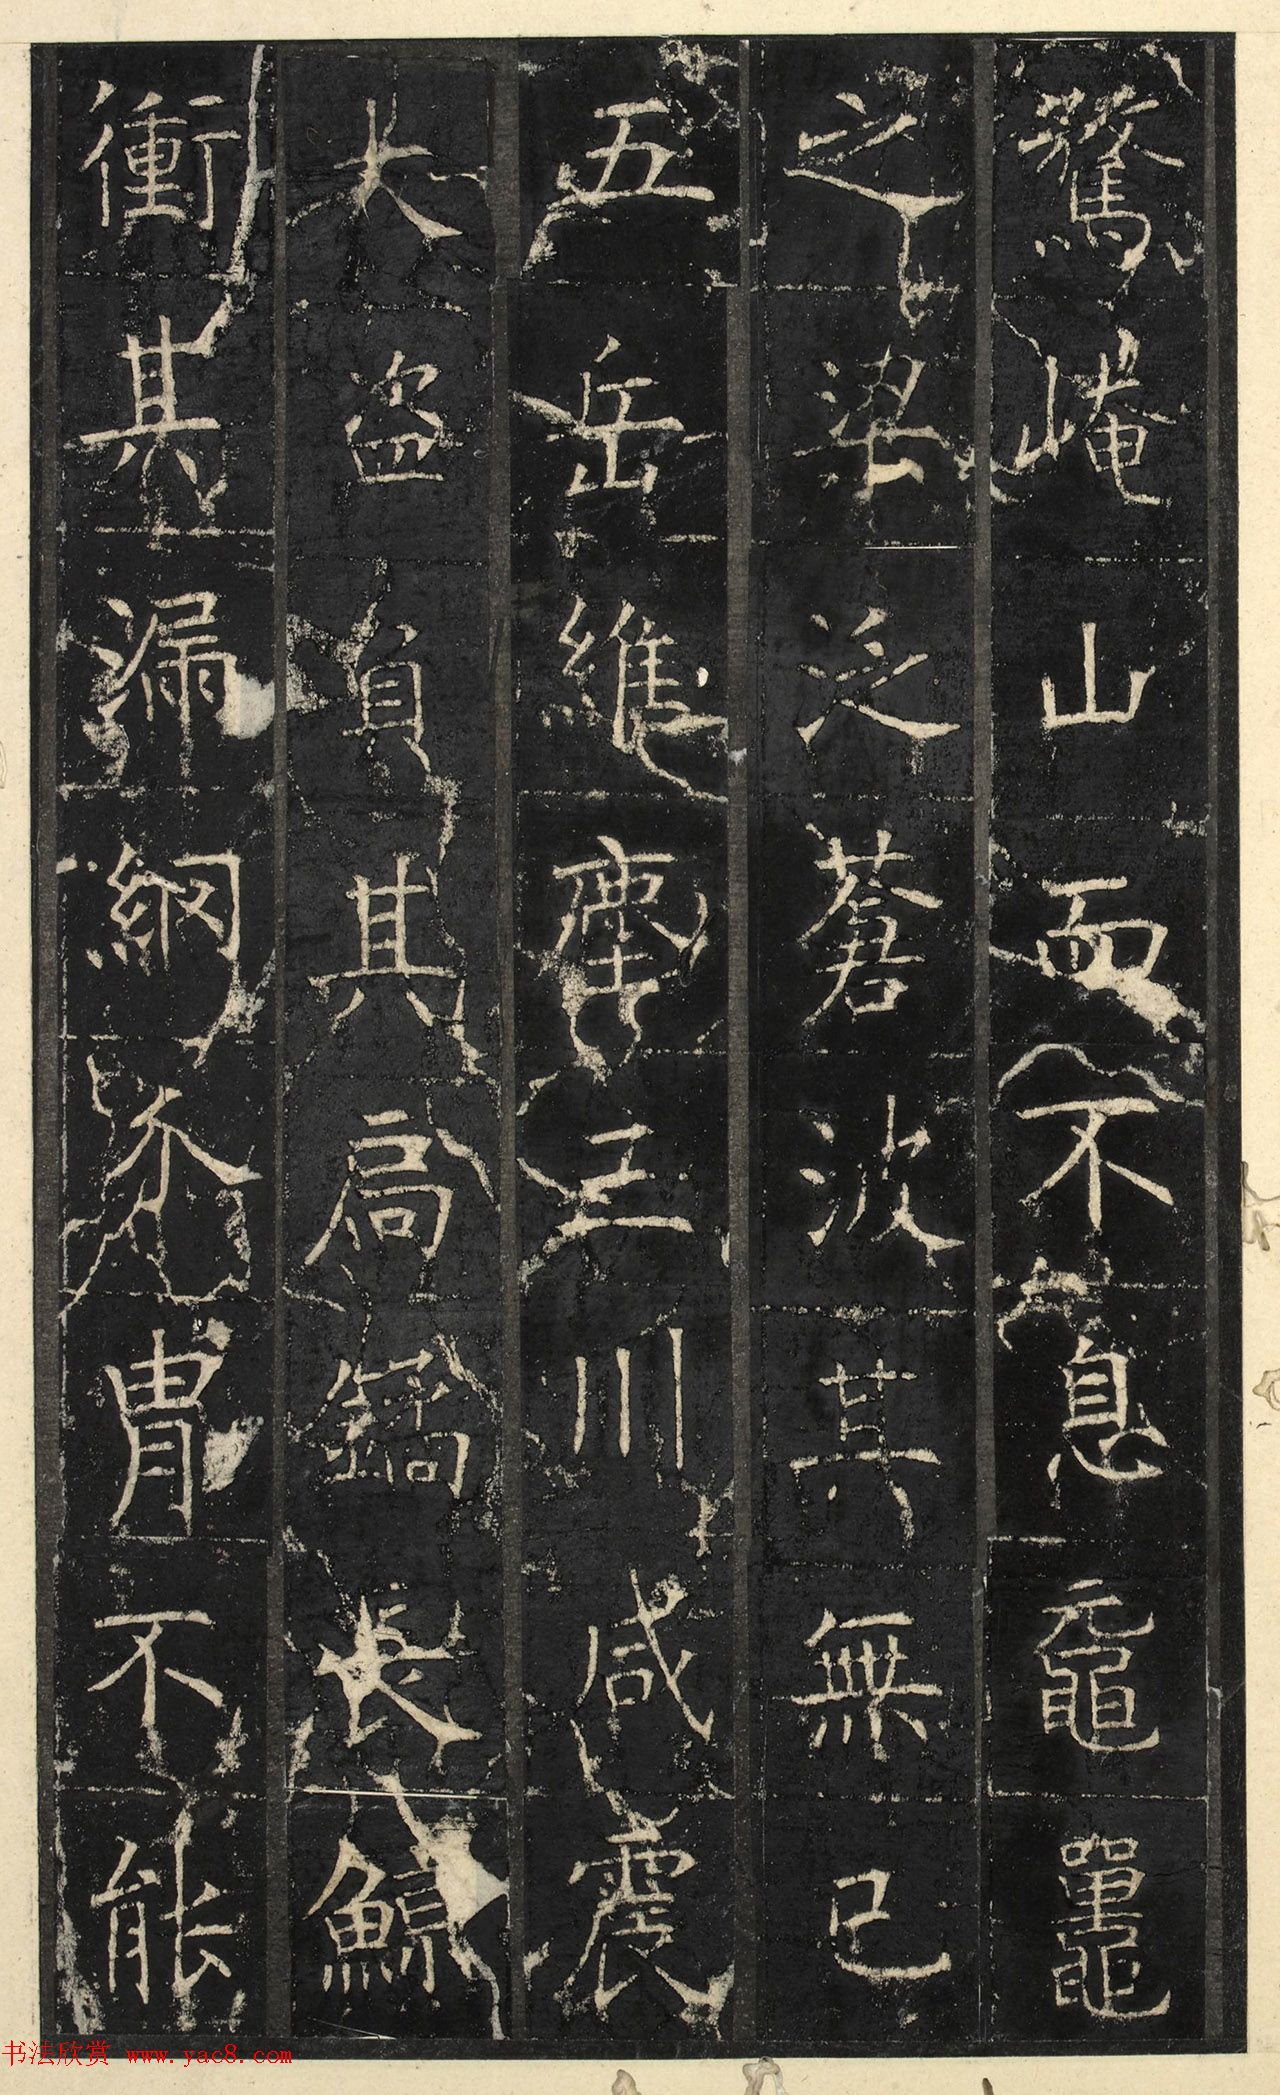 驚崦山而不息黿鼉
之梁泛蒼波其無已
五岳維塵三川咸震
大盜負其扃鐍長鯨
衝其漏網介冑不能
书法欣赏 www.yac8.com